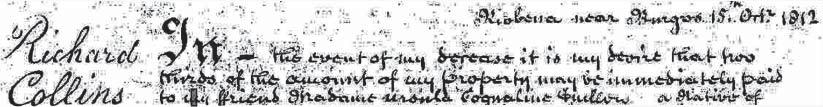 Riobena near Burgos 15th Octr 1812
Richard Collins
In the event of my decease it is my desire that two
thirds of the amount of my Property may be immediately paid
to my friend Madame a Native of